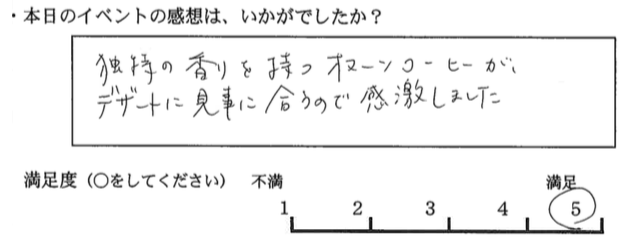 ・本日のイベントの感想は、いかがでしたか？
独特の香りを持つオマーンコーヒーが、
デザートに見事に合うので感激しました
満足度（〇をしてください） 不満 満足
1 2 3 4 5